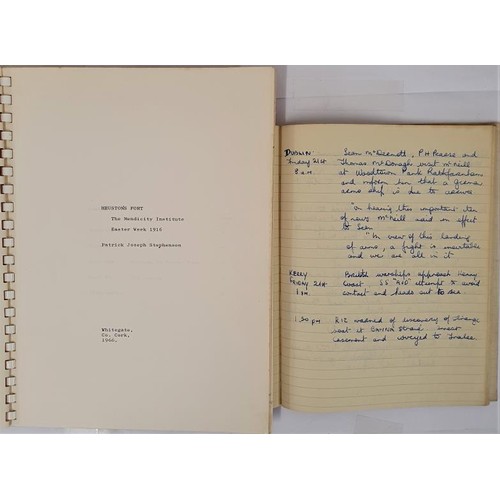 HEUSTON'S FORT
The Mendicity Institute
Easter Week 1916
Patrick Joseph Stephenson
Whitegate,
Co. Cork,
1966.
DUBLIN Sean McDermott, P H Pearse and
Friday 21st Thomas McDonagh visit McNeill
8 a.m. at Woodtown Park Rathfarnham
and inform him that a German
arms ship is due to arrive
"on hearing this important item
of news McNeill said in effect
to Sean
"In view of this landing
of arms, a fight is inevitable
and we are all in it
KERRY British warships approach Kerry
FRIDAY 21st Coast. SS "AUD" attempt to avoid
1 pm. contact and heads out to sea.
1.30 pm RIC warned of discovery of strange
boat at BANNA Strand. 
Casement and conveyed to Tralee